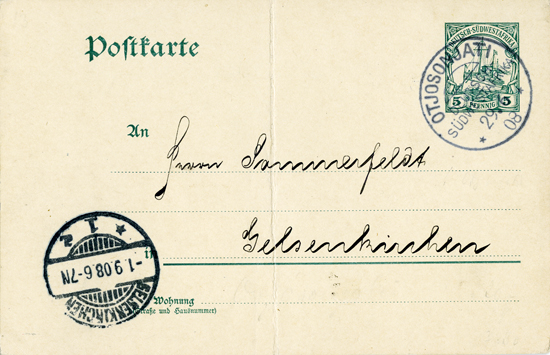 Postkarte
DEUTSCH-SÜDWESTAFRIKA
5 PFENNIG 5
OTJOSONJATI
29
08
An
Herrn Sommerfeldt
Gelsenkirchen
in
Wohnung
(Straße und Hausnummer)
* 1 2
-1.9.08.6-7N
GELSENKIRCHEN